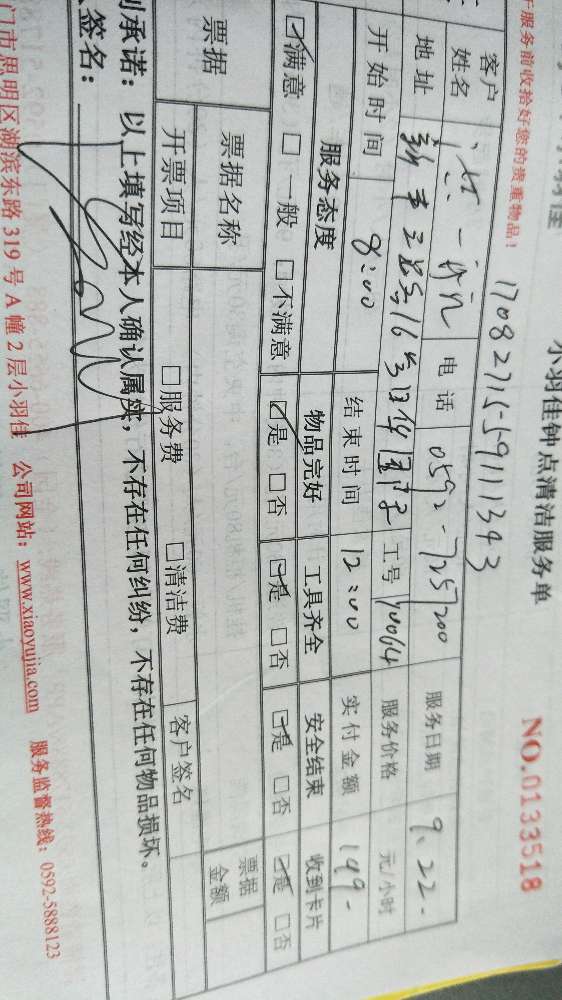 小羽佳钟点清洁服务单
NO.0133518
服务前收拾好您的贵重物品!
17082715-59111343
客户姓名 电话 0592-7257200 服务日期 9.22-
地址 工号 10064 服务价格 元/小时
开始时间 8:00 结束时间 12:00 实付金额 149-
服务态度 物品完好 工具齐全 安全结束 收到卡片
☑满意 □一般 □不满意 ☑是 □否 ☑是 □否 ☑是 □否 ☑是 □否
票据 票据名称 票据金额
开票项目 □服务费 □清洁费 客户签名
承诺:以上填写经本人确认属实,不存在任何纠纷,不存在任何物品损坏。
签名:
门市思明区湖滨东路 319 号 A 幢 2 层小羽佳 公司网站:www.xiaoyujia.com 服务监督热线:0592-5888123